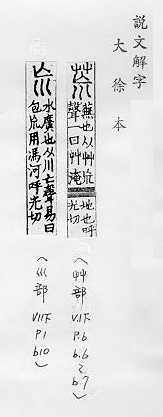 說文解字
大徐本
蕪也从艸㠩
聲一曰艸淹
地也呼
光切
〈艸部
V.1下
P.6
b.6
~
b.7〉
水廣也从川亡聲易曰
包㠩用馮河呼光切
〈巛部
V.11下
P.1
b10〉